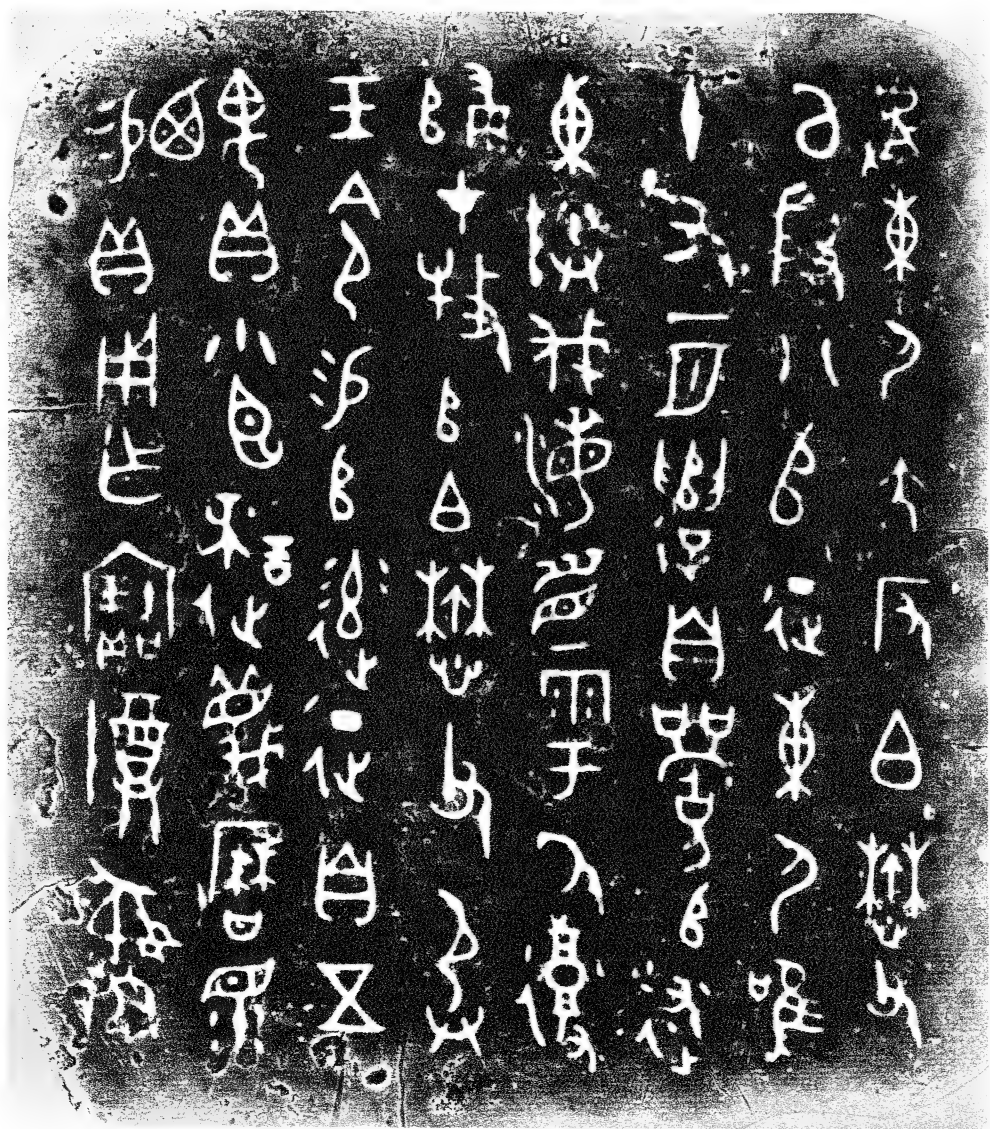 䖒東尸大反白懋父
以殷八𠂤征東尸唯
十又一月遣自𩫨𠂤述
東陕伐海眉雩厥復
歸才牧𠂤白懋父承
王令易𠂤率征自五
齵貝小臣謎蔑曆眔
易貝用乍寶尊彝